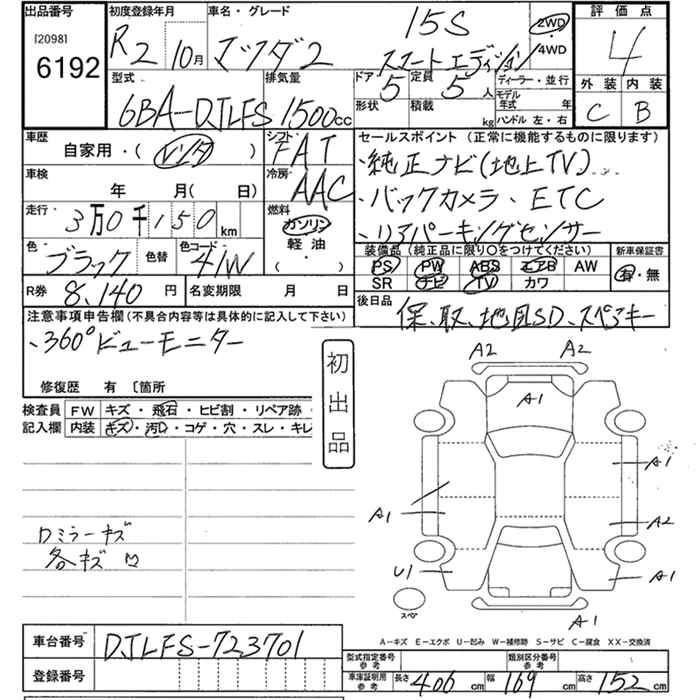 出品番号 初度登録年月 車名・グレード 評価点
[2098]
6192
R2 10月 マツダ2 15S スマートエディション 2WD ・4WD 4
型式 排気量 ドア 定員 ディーラー・並行 外装 内装
6BA-DJLFS 1500cc 5 5人 モデル年式 年 C B
形状 積載 kg ハンドル 左・右
車歴 シフト セールスポイント(正常に機能するものに限ります)
自家用・(レンタ) FAT ・純正ナビ(地上TV)
車検 冷房 ・バックカメラ、ETC
年 月(日) AAC
走行 燃料 ・リアパーキングセンサー
3万0千150km ガソリン
色 色替 色コード 軽油 装備品(純正品に限り○をつけてください) 新車保証書
ブラック 41W ・( ) PS PW ABS エアB AW 有・無
SR ナビ TV カワ
R券 8,140円 名変期限 月 日 後日品
保、取、地図SD、スペアキー
注意事項申告欄(不具合内容等は具体的に記入して下さい)
、360°ビューモニター
修復歴 有 〔箇所
初出品
検査員 FW キズ・飛石・ヒビ割・リペア跡・
記入欄 内装 キズ・汚レ・コゲ・穴・スレ・キレ
A2 A2
A1
A1
A1
A2
U1 A1
A1
ロミラーキズ
各キズ
スペ
A-キズ E-エクボ U-凹み W-補修跡 S-サビ C-腐食 XX-交換済
車台番号 DJLFS-723701
型式指定番号 参考 類別区分番号 参考
登録番号 車庫証明用 参考 長さ 406cm 幅 169cm 高さ 152cm